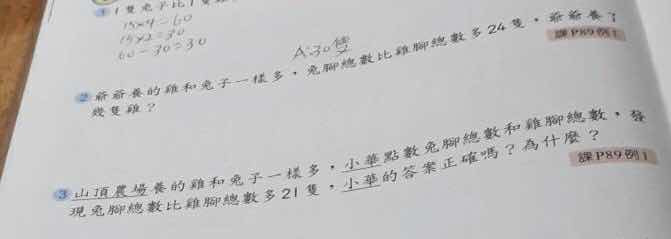 ① 1隻兔子比1隻
15×4=60
15×2=30
60-30=30
A:30隻
② 爺爺養的雞和兔子一樣多，兔腳總數比雞腳總數多24隻，爺爺養了
幾隻雞？
課P89例1
③ 山頂農場養的雞和兔子一樣多，小華點數兔腳總數和雞腳總數，發
現兔腳總數比雞腳總數多21隻，小華的答案正確嗎？為什麼？
課P89例1